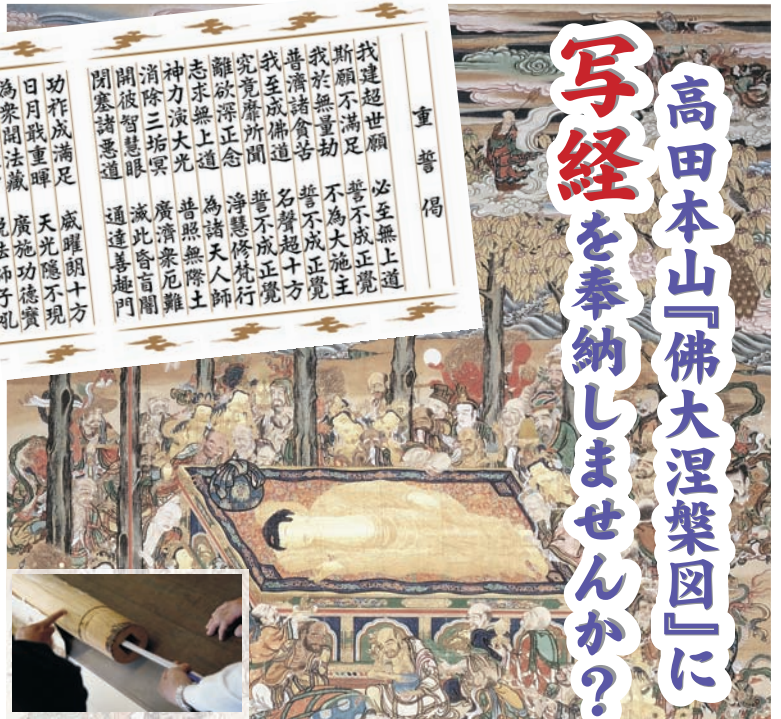 高田本山『佛大涅槃図』に
写経を奉納しませんか?
重誓偈
我建超世願 必至無上道
斯願不滿足 誓不成正覺
我於無量劫 不為大施主
普濟諸貧苦 誓不成正覺
我至成佛道 名聲超十方
究竟靡所聞 誓不成正覺
離欲深正念 淨慧修梵行
志求無上道 為諸天人師
神力演大光 普照無際土
消除三垢冥 廣濟衆厄難
開彼智慧眼 滅此昏盲闇
閉塞諸悪道 通達善趣門
功祚成滿足 威曜朗十方
日月戢重暉 天光隱不現
為衆開法藏 廣施功德寶
説法師子吼